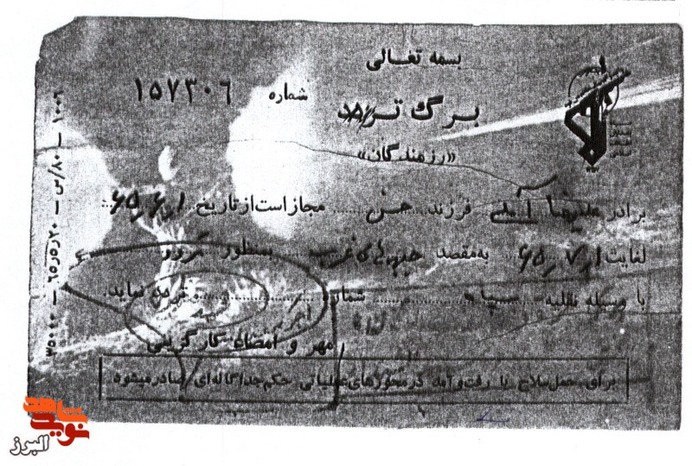 بسمه تعالی
شماره ۱۵۷۳۰۶
برگ تردد
«رزمندگان»
برادر علیرضا املی فرزند حسن مجاز است از تاریخ ۶۵/۶/۱
لغایت ۶۵/۷/۱ به مقصد جبهه‌های غرب بمنظور
با وسیله نقلیه سپاه شماره نماید.
مهر و امضاء کارگزینی
برای حمل سلاح یا رفت و آمد در محورهای عملیاتی حکم جداگانه‌ای صادر میشود
نوید شاهد
البرز